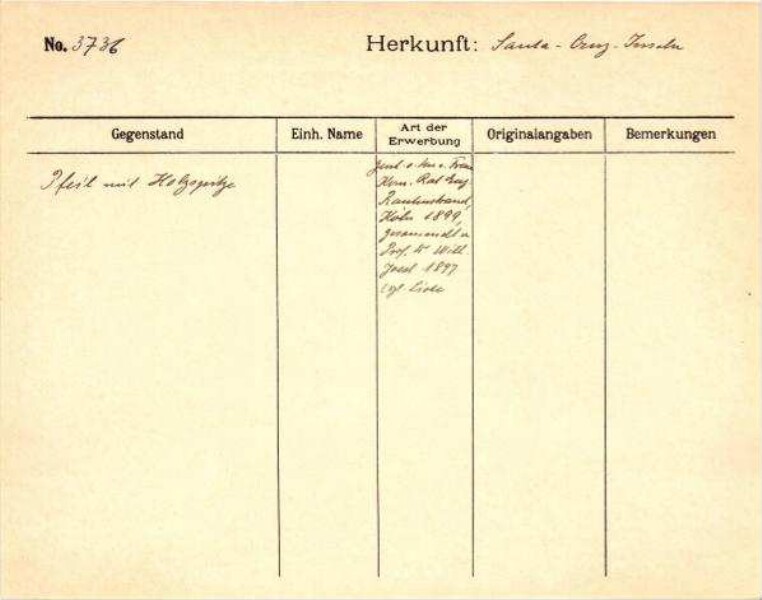 No. 3736 Herkunft: Santa-Cruz-Inseln
Gegenstand Einh. Name Art der Erwerbung Originalangaben Bemerkungen
Pfeil mit Holzspitze
Frau
Kom. Rat Eug.
Rautenstrauch,
Köln 1899,
gesammelt v.
Prof. Dr Wilh.
Joest 1897
Liste